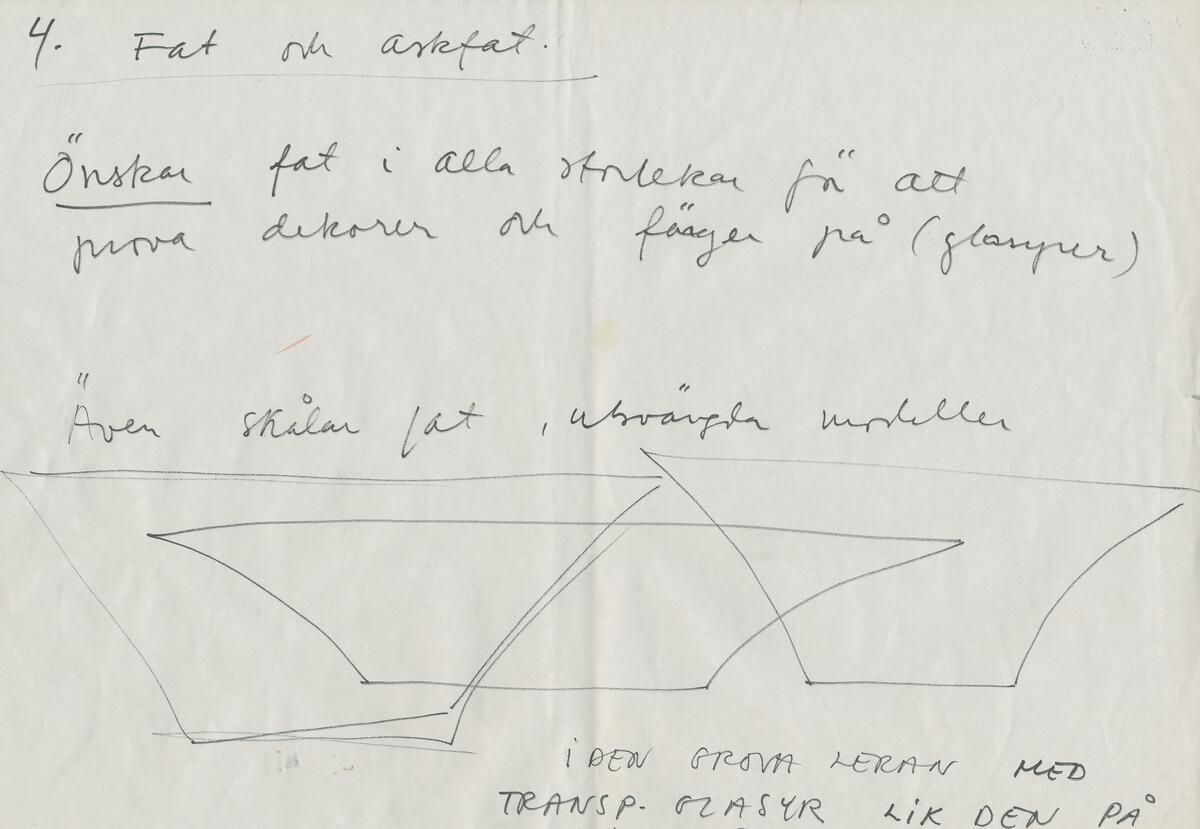 4. Fat och askfat.
Önskar fat i alla storlekar för att
prova dekorer och färger på (glasyrer)
Även skålar fat, utsvängda modeller
I DEN GROVA LERAN MED
TRANSP. GLASYR LIK DEN PÅ